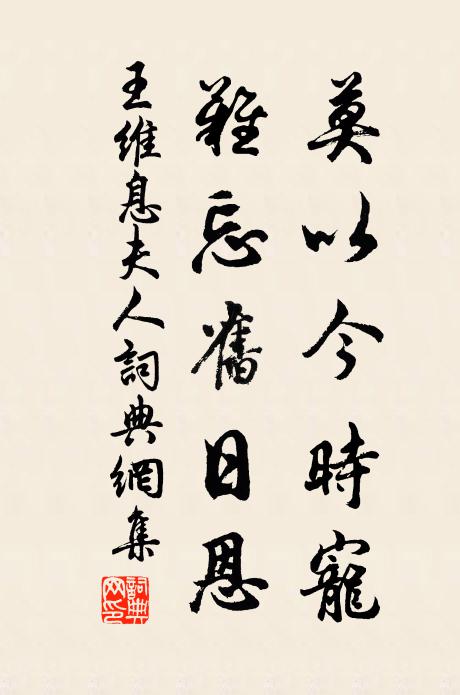 莫以今時寵
難忘舊日恩
王維息夫人詞典網集
詞典
网印